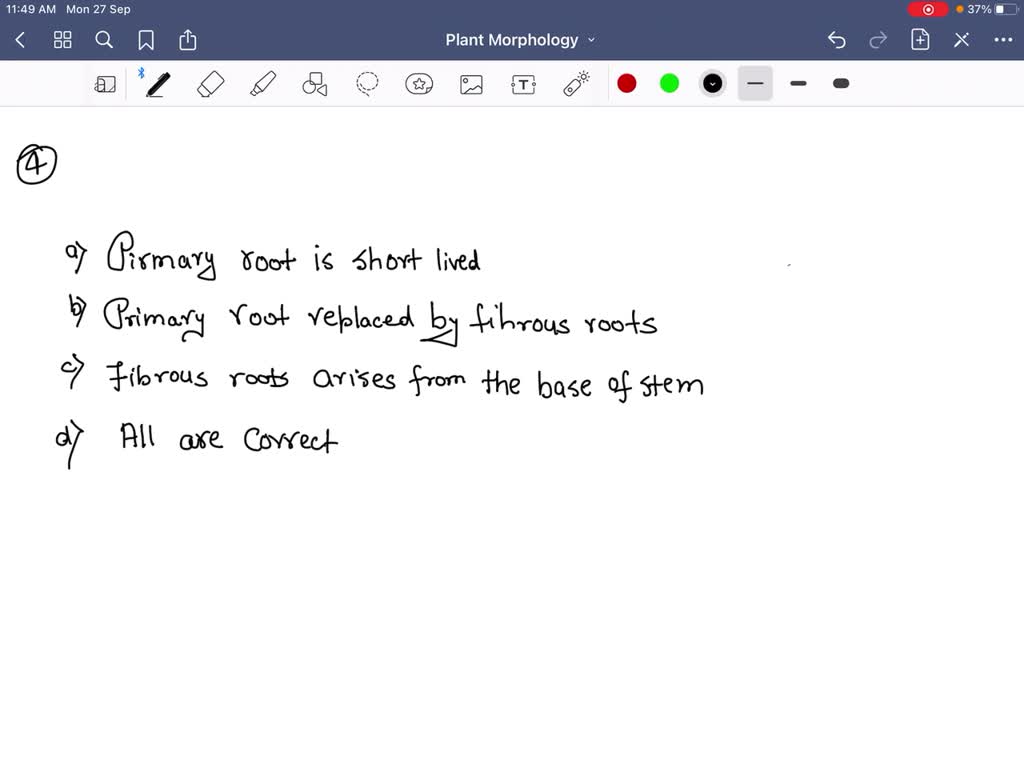 11:49 AM Mon 27 Sep
37%
Plant Morphology
T
4
a) Pirmary root is short lived
b) Primary root replaced by fibrous roots
c) Fibrous roots arises from the base of stem
d) All are correct